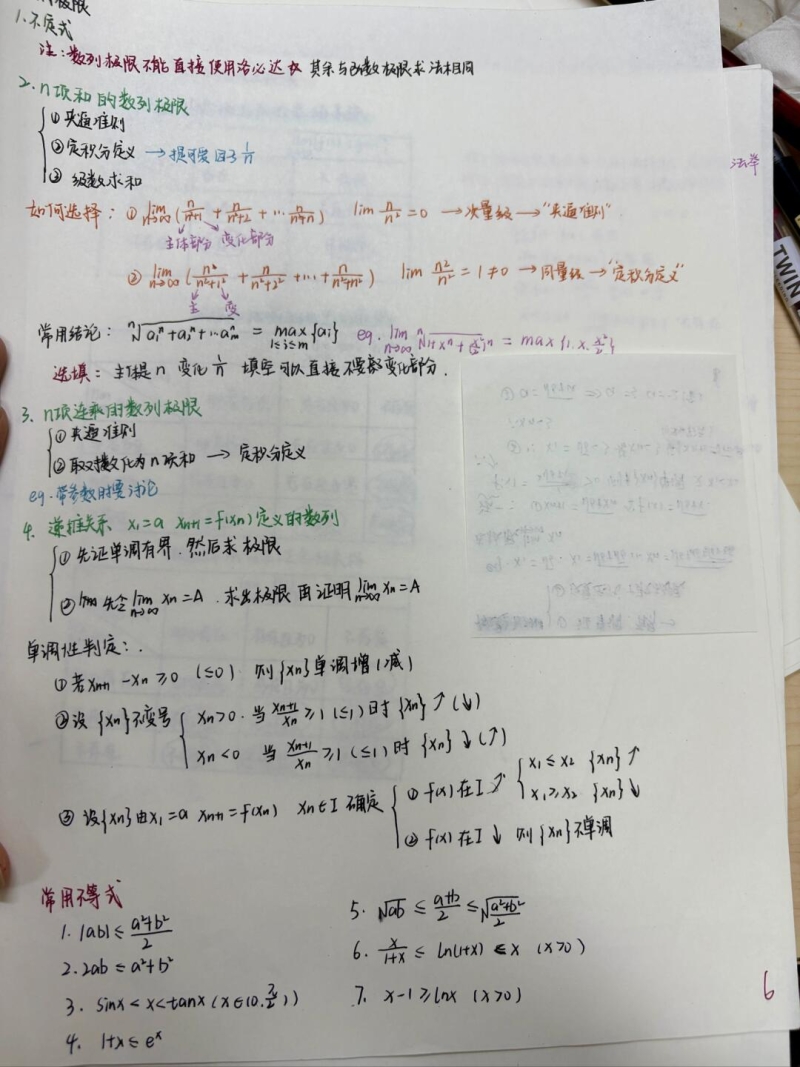 极限
1. 不定式
注：数列极限不能直接使用洛必达 其余与函数极限求法相同
2. n项和的数列极限
① 夹逼准则
② 定积分定义 → 提可爱因子 1/n
③ 级数求和
法举
如何选择： ① lim n→∞ (n/(n²+1) + n/(n²+2) + … n/(n²+n)) lim n/n² = 0 → 次量级 → "夹逼准则"
主体部分 变化部分
② lim n→∞ (n/(n²+1²) + n/(n²+2²) + … + n/(n²+n²)) lim n²/n² = 1 ≠ 0 → 同量级 → "定积分定义"
主 变
常用结论： ⁿ√(a₁ⁿ + a₂ⁿ + … aₘⁿ) = max 1≤i≤m {aᵢ} eg. lim n→∞ ⁿ√(1 + xⁿ + (x²/2)ⁿ) = max {1. x. x²/2}
选填： 主体提 n 变化 1/n 填空可以直接不要变化部分.
3. n项连乘的数列极限
① 夹逼准则
② 取对数化为n项和 → 定积分定义
eg. 带参数时要讨论
4. 递推关系 x₁=a xₙ₊₁=f(xₙ) 定义的数列
① 先证单调有界. 然后求极限
② 先令 lim n→∞ xₙ = A . 求出极限 再证明 lim n→∞ xₙ = A
单调性判定：.
① 若 xₙ₊₁ - xₙ ≥ 0 (≤0) 则{xₙ}单调增(减)
② 设{xₙ}不变号 xₙ>0. 当 xₙ₊₁/xₙ ≥1 (≤1) 时 {xₙ} ↑ (↓)
xₙ<0 当 xₙ₊₁/xₙ ≥1 (≤1) 时 {xₙ} ↓ (↑)
③ 设{xₙ}由x₁=a xₙ₊₁=f(xₙ) xₙ∈I 确定 ① f(x)在I ↑ x₁≤x₂ {xₙ} ↑
x₁≥x₂ {xₙ} ↓
② f(x)在I ↓ 则{xₙ}不单调
常用不等式
1. |ab| ≤ (a²+b²)/2
2. 2ab ≤ a²+b²
3. sinx < x < tanx (x∈(0. π/2))
4. 1+x ≤ eˣ
5. √ab ≤ (a+b)/2 ≤ √((a²+b²)/2)
6. x/(1+x) ≤ ln(1+x) ≤ x (x>0)
7. x-1 ≥ lnx (x>0)
6
TWIN